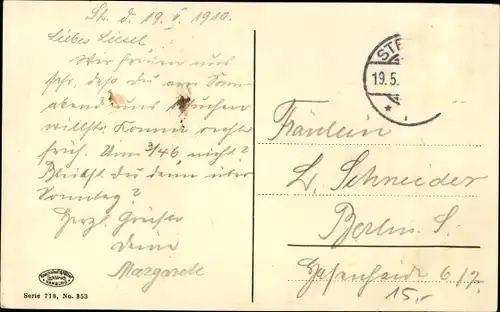 St. d. 19. V. 1910.
Liebes Liesel!
Wir freuen uns
sehr, daß du am Sonn-
abend uns besuchen
willst. Komme recht
früh. Um 3/46, nicht?
Bleibst du denn über
Sonntag?
Herzl. Grüße
Deine
Margarete
STE
19.5.
Fräulein
L. Schneider
Berlin. S.
Hasenheide 6/7.
15,-
HAMBURG
Serie 718, No. 353